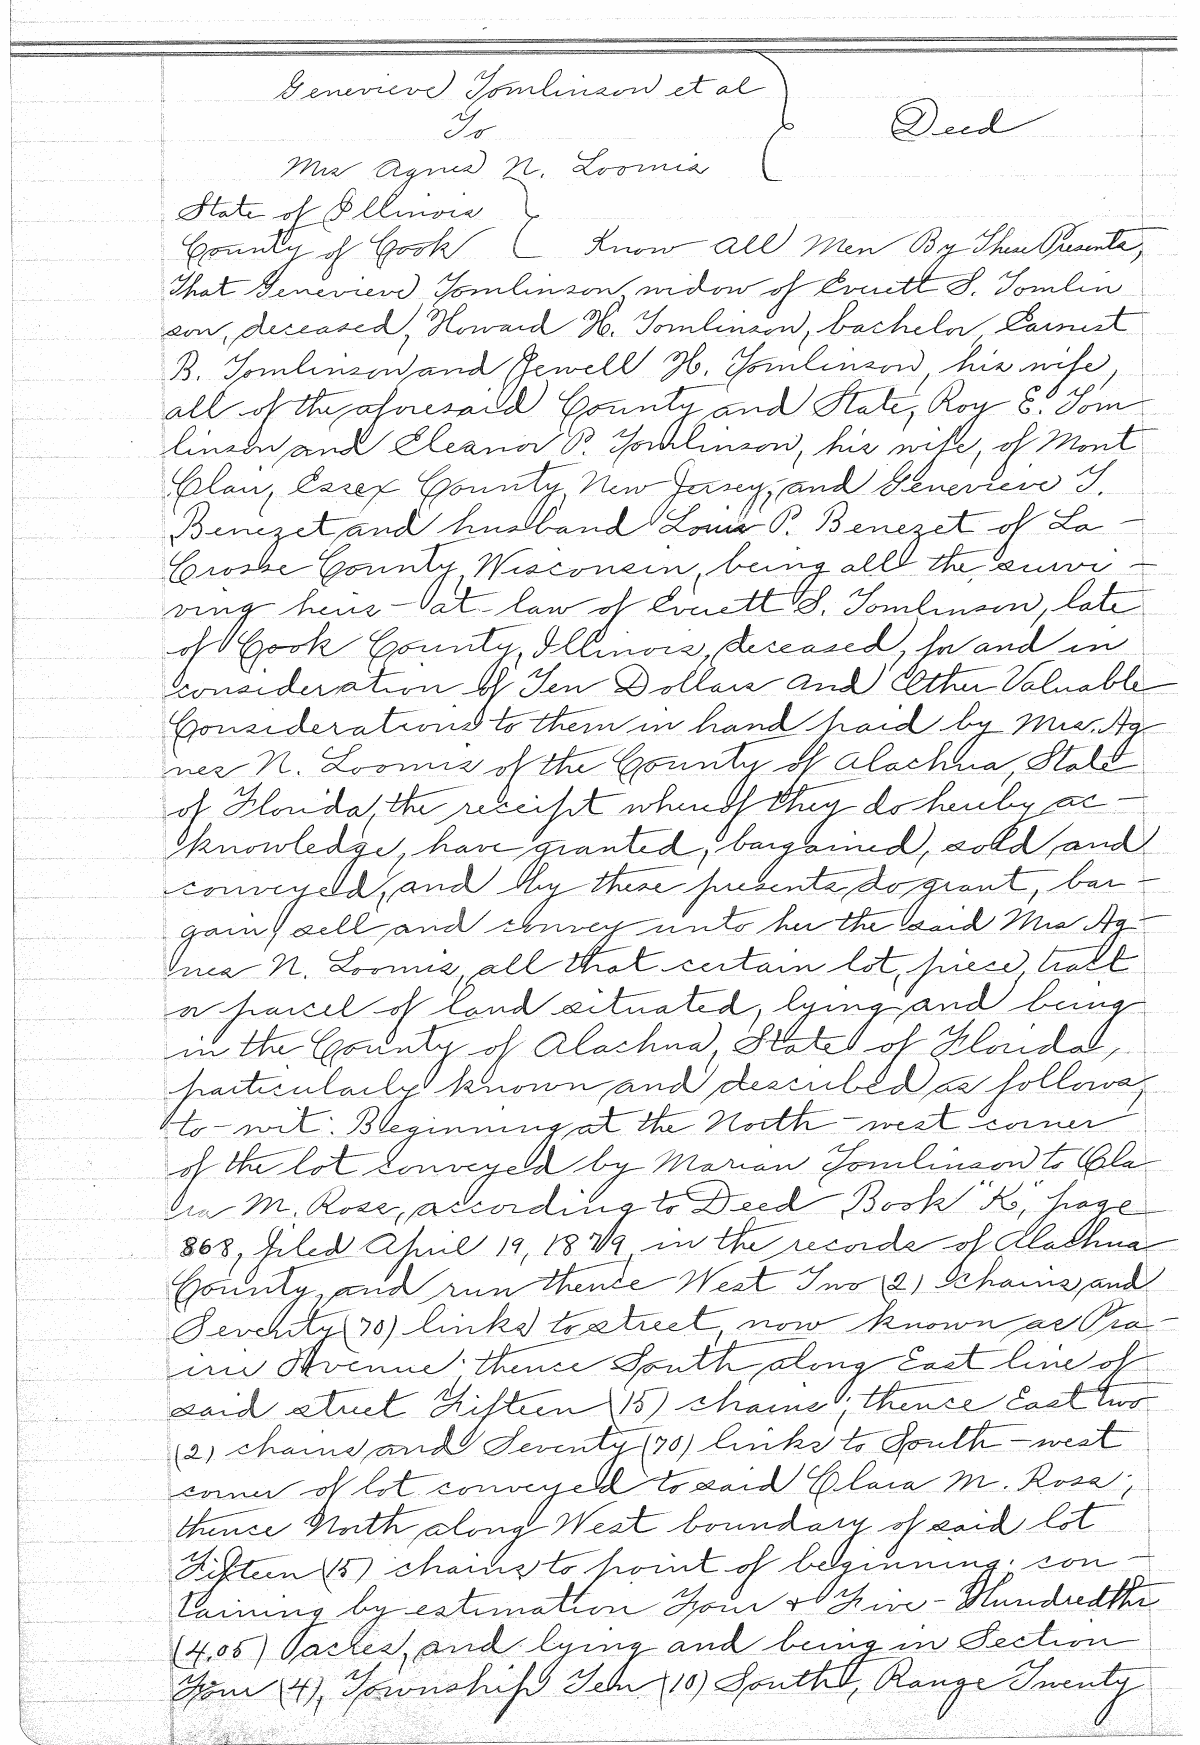 Genevieve Tomlinson et al
To
Mrs Agnes N. Loomis
Deed
State of Illinois
County of Cook
Know All Men By These Presents,
That Genevieve Tomlinson, widow of Everett S. Tomlin
son, deceased, Howard H. Tomlinson, bachelor, Earnest
B. Tomlinson and Jewell H. Tomlinson, his wife,
all of the aforesaid County and State, Roy E. Tom
linson and Eleanor P. Tomlinson, his wife, of Mont
Clair, Essex County, New Jersey, and Genevieve T.
Benezet and husband Louis P. Benezet of La -
Crosse County, Wisconsin, being all the survi -
ving heirs - at - law of Everett S. Tomlinson, late
of Cook County, Illinois, deceased, for and in
consideration of Ten Dollars and Other Valuable
Considerations to them in hand paid by Mrs. Ag
nes N. Loomis of the County of Alachua, State
of Florida, the receipt whereof they do hereby ac -
knowledge, have granted, bargained, sold and
conveyed, and by these presents do grant, bar -
gain, sell and convey unto her the said Mrs Ag -
nes N. Loomis, all that certain lot, piece, tract
or parcel of land situated, lying and being
in the County of Alachua, State of Florida,
particularly known and described as follows,
to - wit: Beginning at the North - west corner
of the lot conveyed by Marian Tomlinson to Cla
ra M. Rose, according to Deed Book "K", page
868, filed April 19, 1879, in the records of Alachua
County, and run thence West Two (2) chains and
Seventy (70) links to street, now known as Pra -
irie Avenue; thence South along East line of
said street Fifteen (15) chains; thence East two
(2) chains and Seventy (70) links to South - west
corner of lot conveyed to said Clara M. Rose;
thence North along West boundary of said lot
Fifteen (15) chains to point of beginning; con -
taining by estimation Four & Five - Hundredths
(4.05) acres, and lying and being in Section
Four (4), Township Ten (10) South, Range Twenty